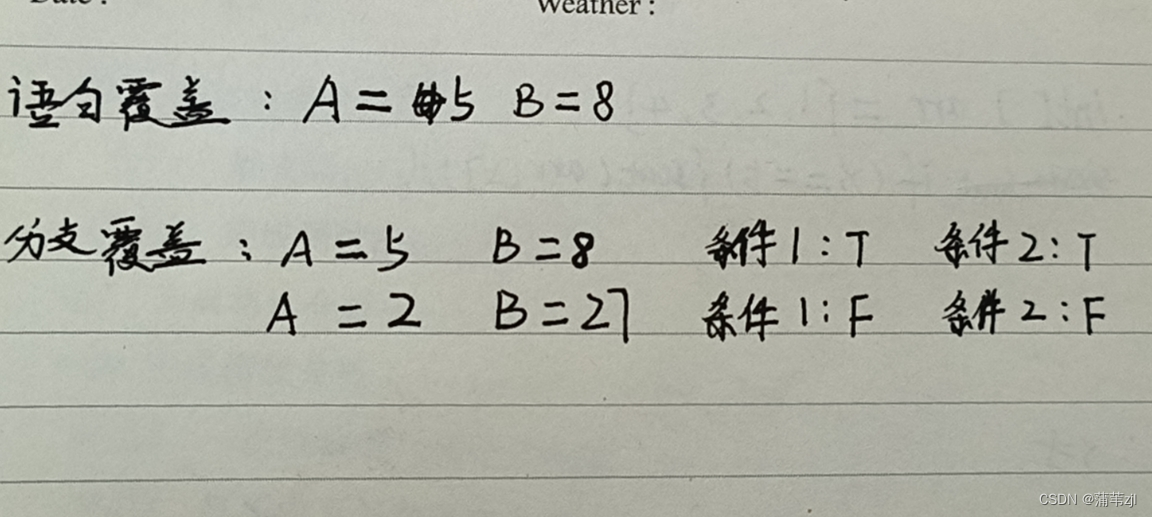 Weather :
语句覆盖 : A = 5 B = 8
分支覆盖 : A = 5 B = 8 条件1 : T 条件2 : T
A = 2 B = 27 条件1 : F 条件2 : F
CSDN @蒲苇zjl